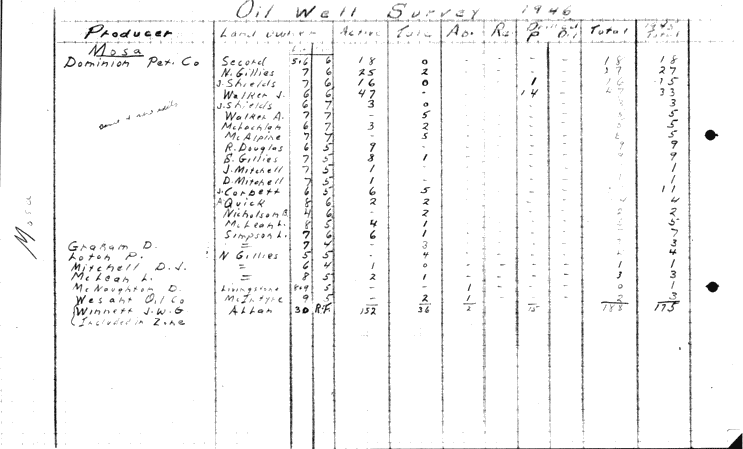 Oil Well Survey 1946
Producer Land owner L. C. Active Idle Ab. Rs. Drilled P. D.i Total 1945 Total
Mosa
Dominion Pet. Co Second 5&6 6 18 0 - - - - 18 18
N. Gillies 7 6 25 2 - - - - 27 27
J. Shields 7 6 16 0 - - 1 - 16 15
Walker J. 6 6 47 - - 14 - 47 33
J. Shields 6 7 3 0 - - - - 3
Walker A. 7 7 - 5 - - - - 5
McLachlan 6 7 3 2 - - - - 5
McAlpine 7 7 - 5 - - - - 5
R. Douglas 6 5 9 - - - - - 9 9
S. Gillies 7 5 8 1 - - - - 9 9
J. Mitchell 7 5 1 - - - - 1
D. Mitchell 7 5 1 - - - - 1
J. Corbett 6 5 6 5 - - - - 11
A Quick 8 6 2 2 - - - - 4
Nicholson B. 4 6 - 2 - - - - 2
McLean L. 8 5 4 1 - - - - 5
Simpson L. 7 6 6 1 - - - - 7
Graham D. = 7 4 - 3 - - - - 3
Loton P. N Gillies 5 5 - 4 - - - - 4
Mitchell D. J. = 6 4 1 0 - - - - 1 1
McLean L. = 8 5 2 1 - - - - 3 3
McNaughton D. Livingstone 8&9 5 - - 1 - - - 0 1
Wesaht Oil Co McIntyre 9 5 - 2 1 - - - 2 3
Winnett J. W. G Allan 30 R.F. 152 36 2 15 188 175
(Included in Zone
Mosa